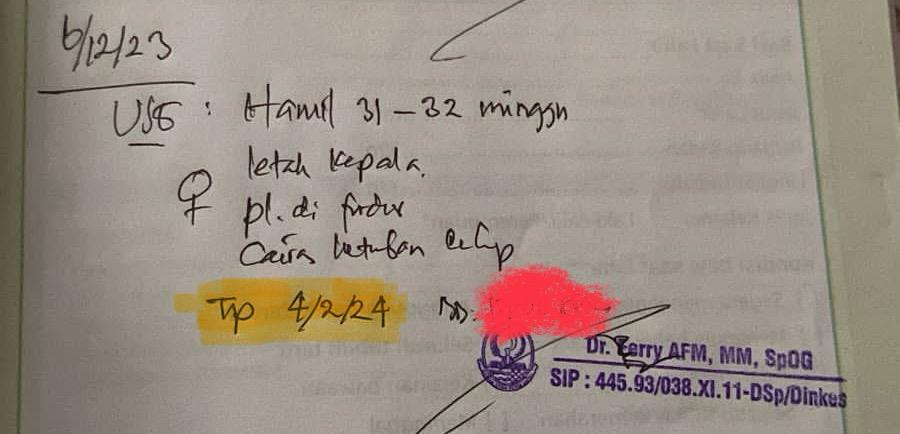 6/12/23
USG : Hamil 31-32 minggu
letak kepala.
♀ pl. di fundus
Cairan ketuban cukup
Tp 4/2/24
Dr. Ferry AFM, MM, SpOG
SIP : 445.93/038.XI.11-DSp/Dinkes